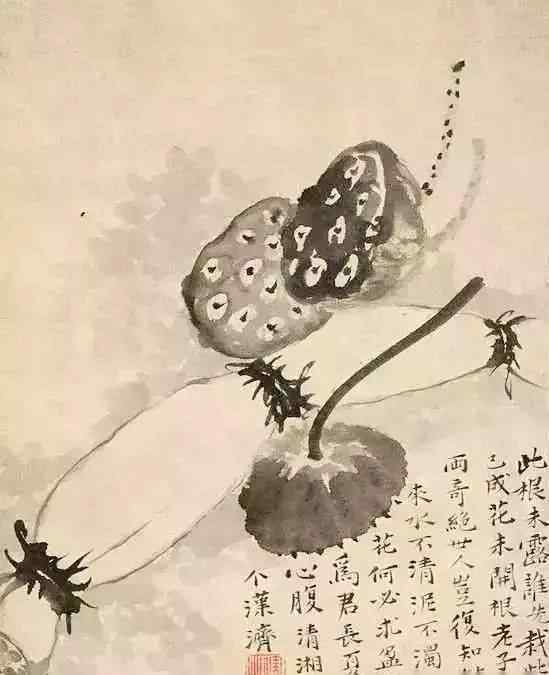 此根未露誰先栽此
已成花未開根老子
兩奇絶世人豈復知
來水不清泥不濁
花何必求盈
爲君長
心腹清湘
濟